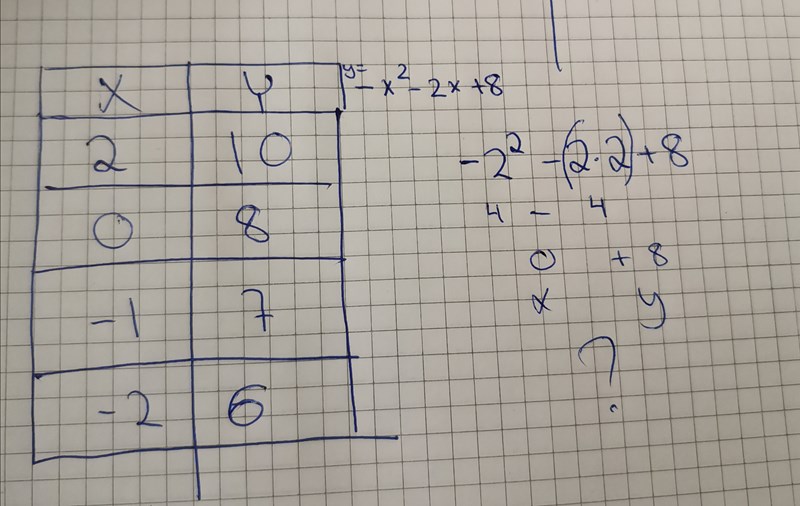 x y y= -x² - 2x + 8
2 10
0 8
-1 7
-2 6
-2² - (2·2) + 8
4 - 4
0 + 8
x y
?